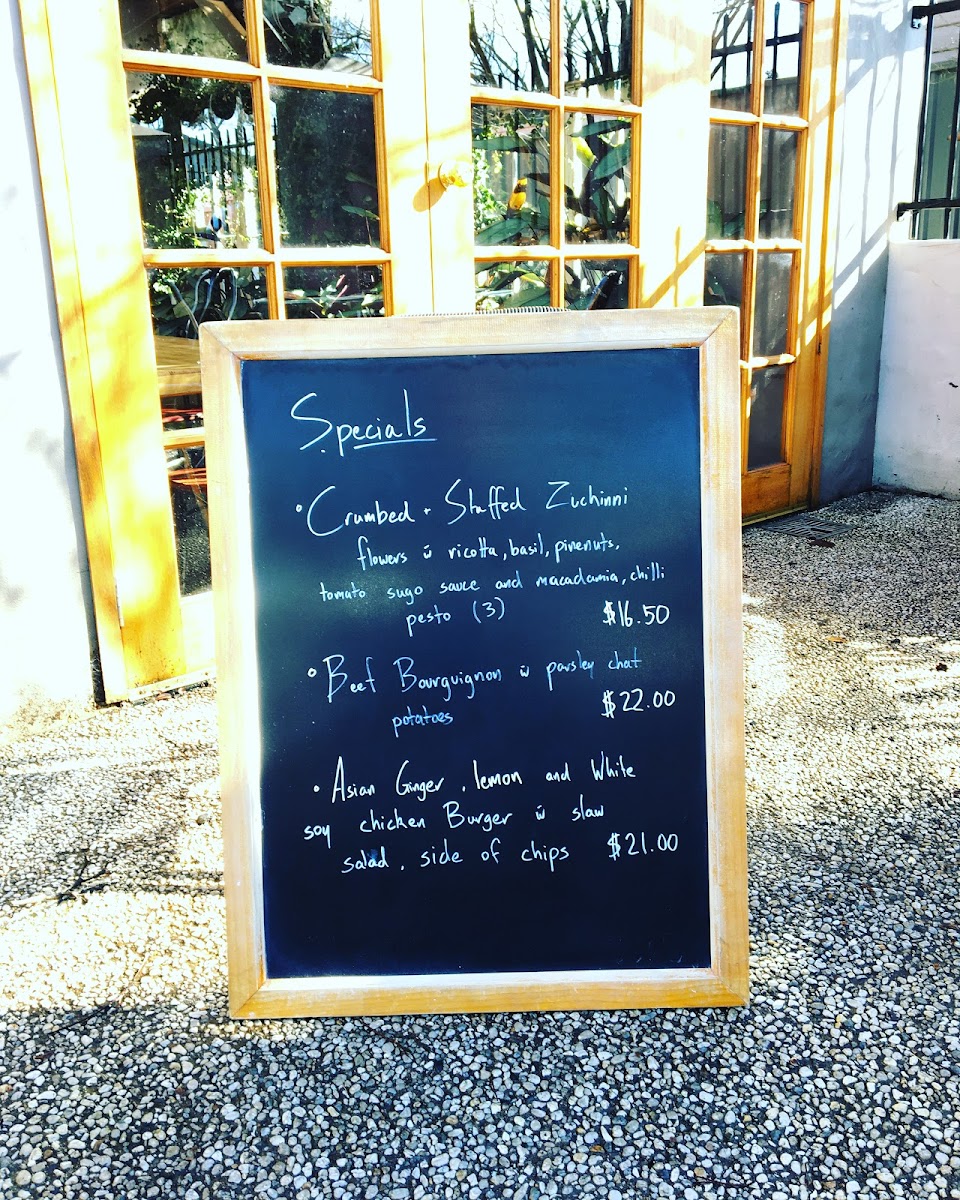 Specials
• Crumbed + Stuffed Zuchinni
flowers w̄ ricotta, basil, pinenuts,
tomato sugo sauce and macadamia, chilli
pesto (3) $16.50
• Beef Bourguignon w̄ parsley chat
potatoes $22.00
• Asian Ginger, lemon and White
soy chicken Burger w̄ slaw
salad, side of chips $21.00